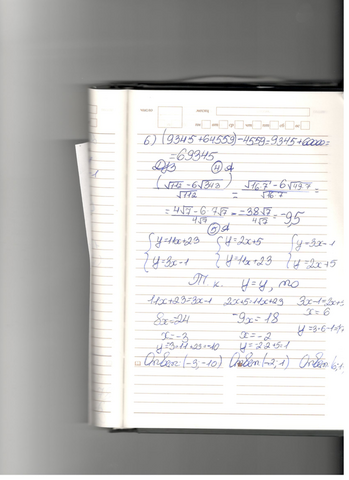 б) (9345+64559)-4559=9345+60000=
=69345
Д/з
④
(√112 - 6√343)/√112 = (√16·7 - 6√49·7)/√16·7 =
= (4√7 - 6·7√7)/4√7 = -38√7/4√7 = -9,5
⑤
{y=11x+23 {y=2x+5 {y=3x-1
{y=3x-1 {y=11x+23 {y=2x+5
Т к. y=y, то
11x+23=3x-1 2x+5=11x+23 3x-1=2x+5
8x=24 -9x=18 x=6
x=-3 x=-2 y=3·6-1=17
y=-2·2+5=1
Ответ: (-3;-10) Ответ: (-2;1) Ответ: